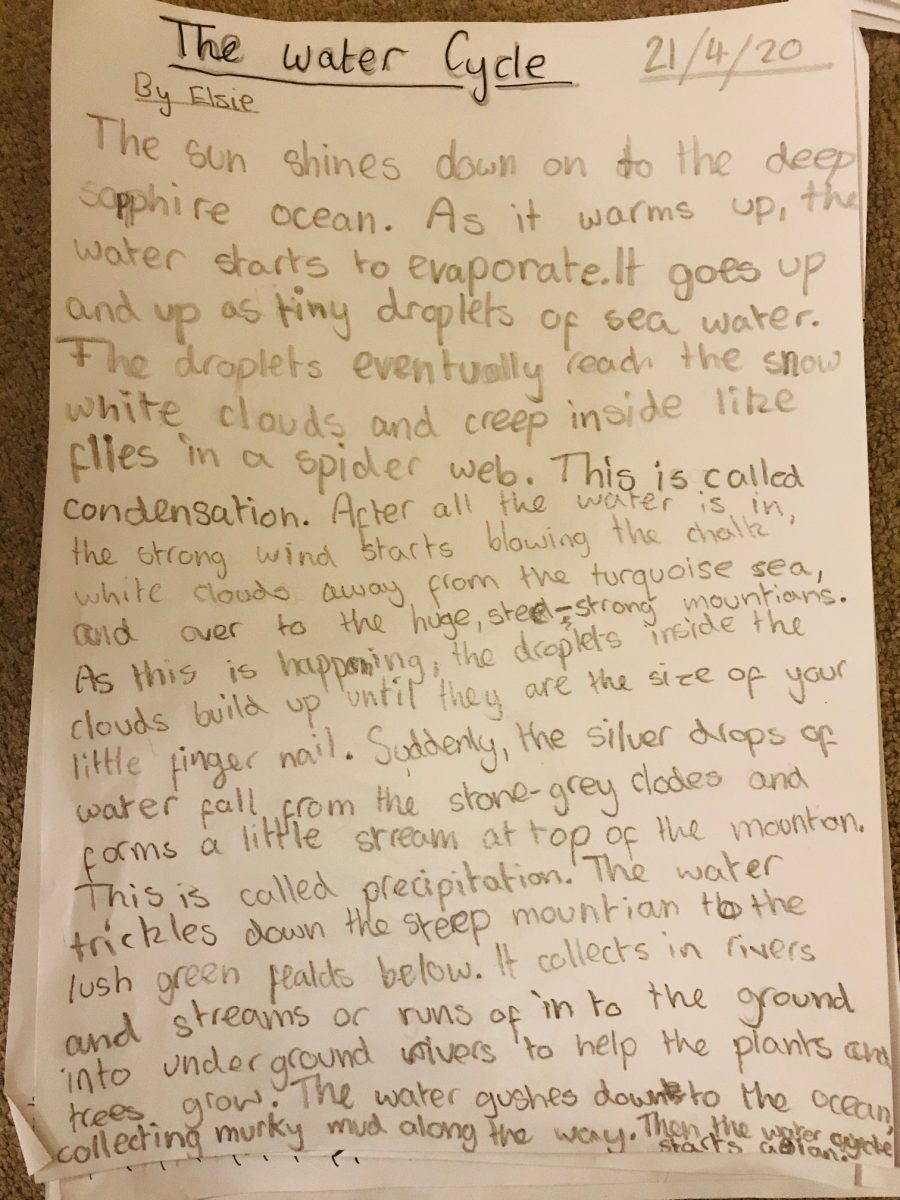 The Water Cycle
21/4/20
By Elsie
The sun shines down on to the deep
sapphire ocean. As it warms up, the
water starts to evaporate. It goes up
and up as tiny droplets of sea water.
The droplets eventually reach the snow
white clouds and creep inside like
flies in a spider web. This is called
condensation. After all the water is in,
the strong wind starts blowing the chalk
white clouds away from the turquoise sea,
and over to the huge, steel-strong mountians.
As this is happening, the droplets inside the
clouds build up until they are the size of your
little finger nail. Suddenly, the silver drops of
water fall from the stone-grey clodes and
forms a little stream at top of the mountan.
This is called precipitation. The water
trickles down the steep mountian to the
lush green fealds below. It collects in rivers
and streams or runs of in to the ground
into underground rivers to help the plants and
trees grow. The water gushes down to the ocean,
collecting murky mud along the way. Then the water cycle
starts agian.